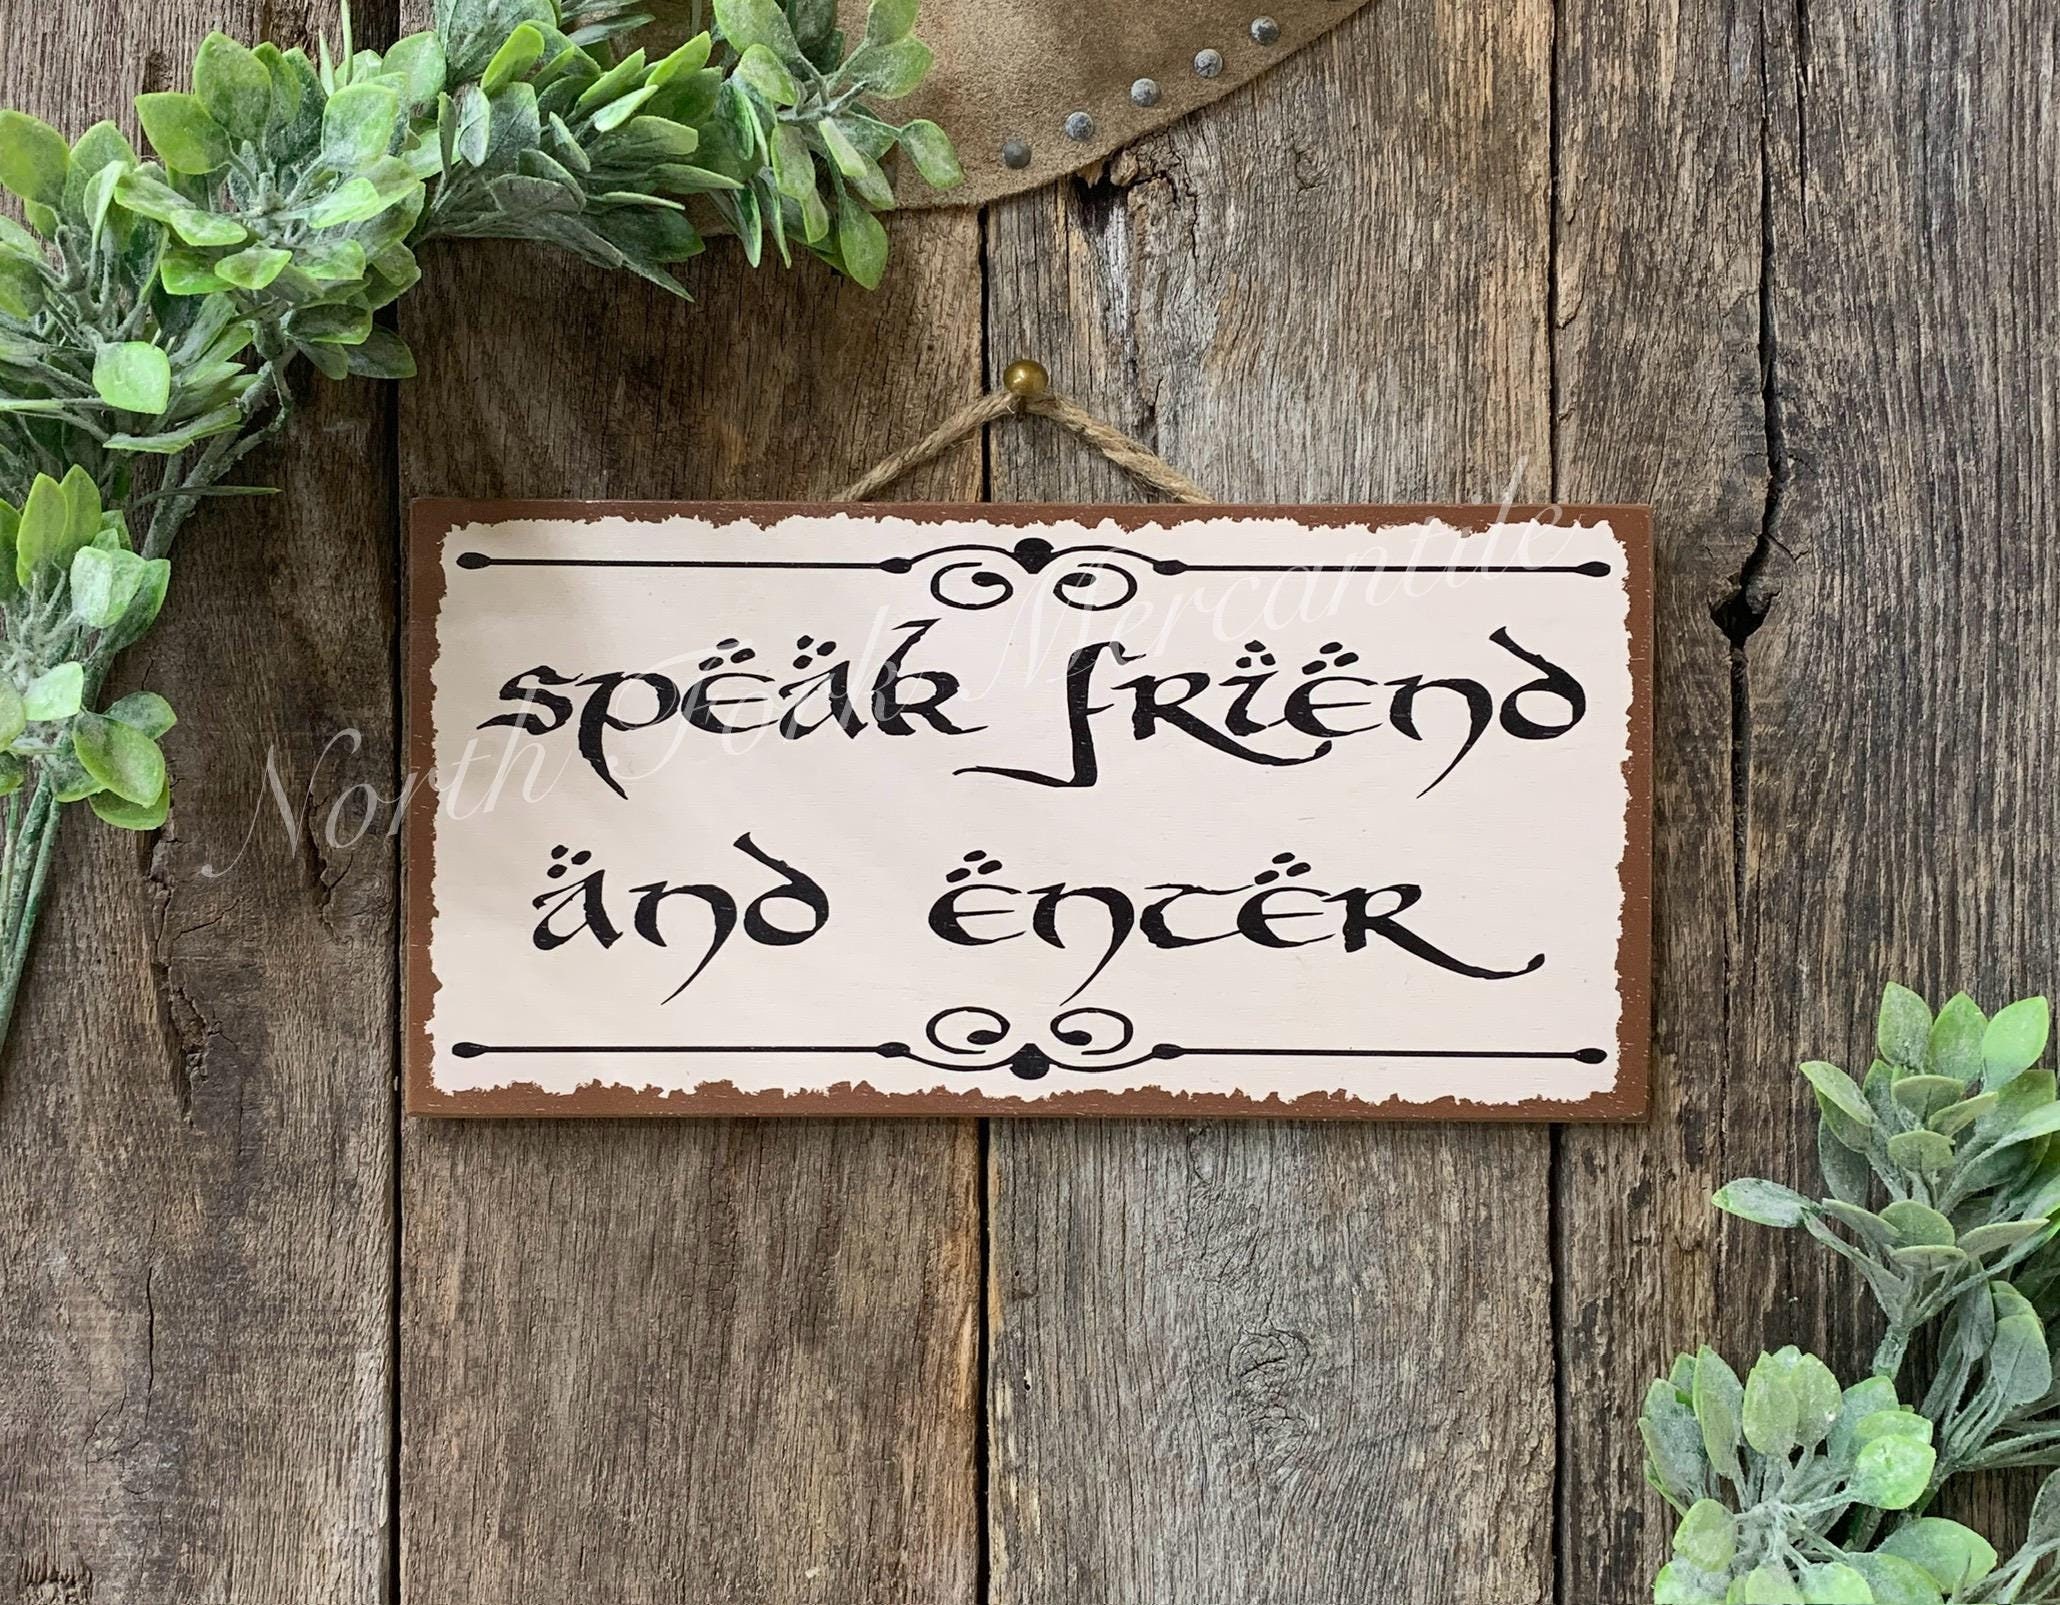 speak friend
and enter
North Fork Mercantile